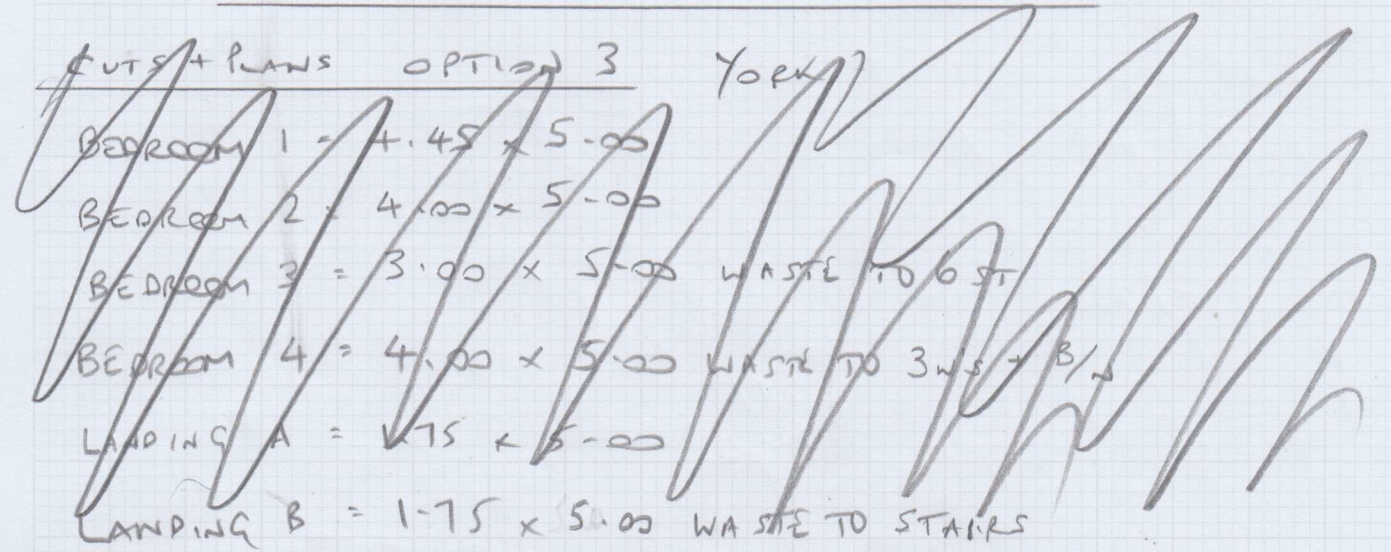 CUTS + PLANS OPTION 3 YORK
BEDROOM 1 = 4.45 x 5.00
BEDROOM 2 = 4.00 x 5.00
BEDROOM 3 = 3.00 x 5.00 WASTE TO 6 ST
BEDROOM 4 = 4.00 x 5.00 WASTE TO 3 WS + B/N
LANDING A = 1.75 x 5.00
LANDING B = 1.75 x 5.00 WASTE TO STAIRS